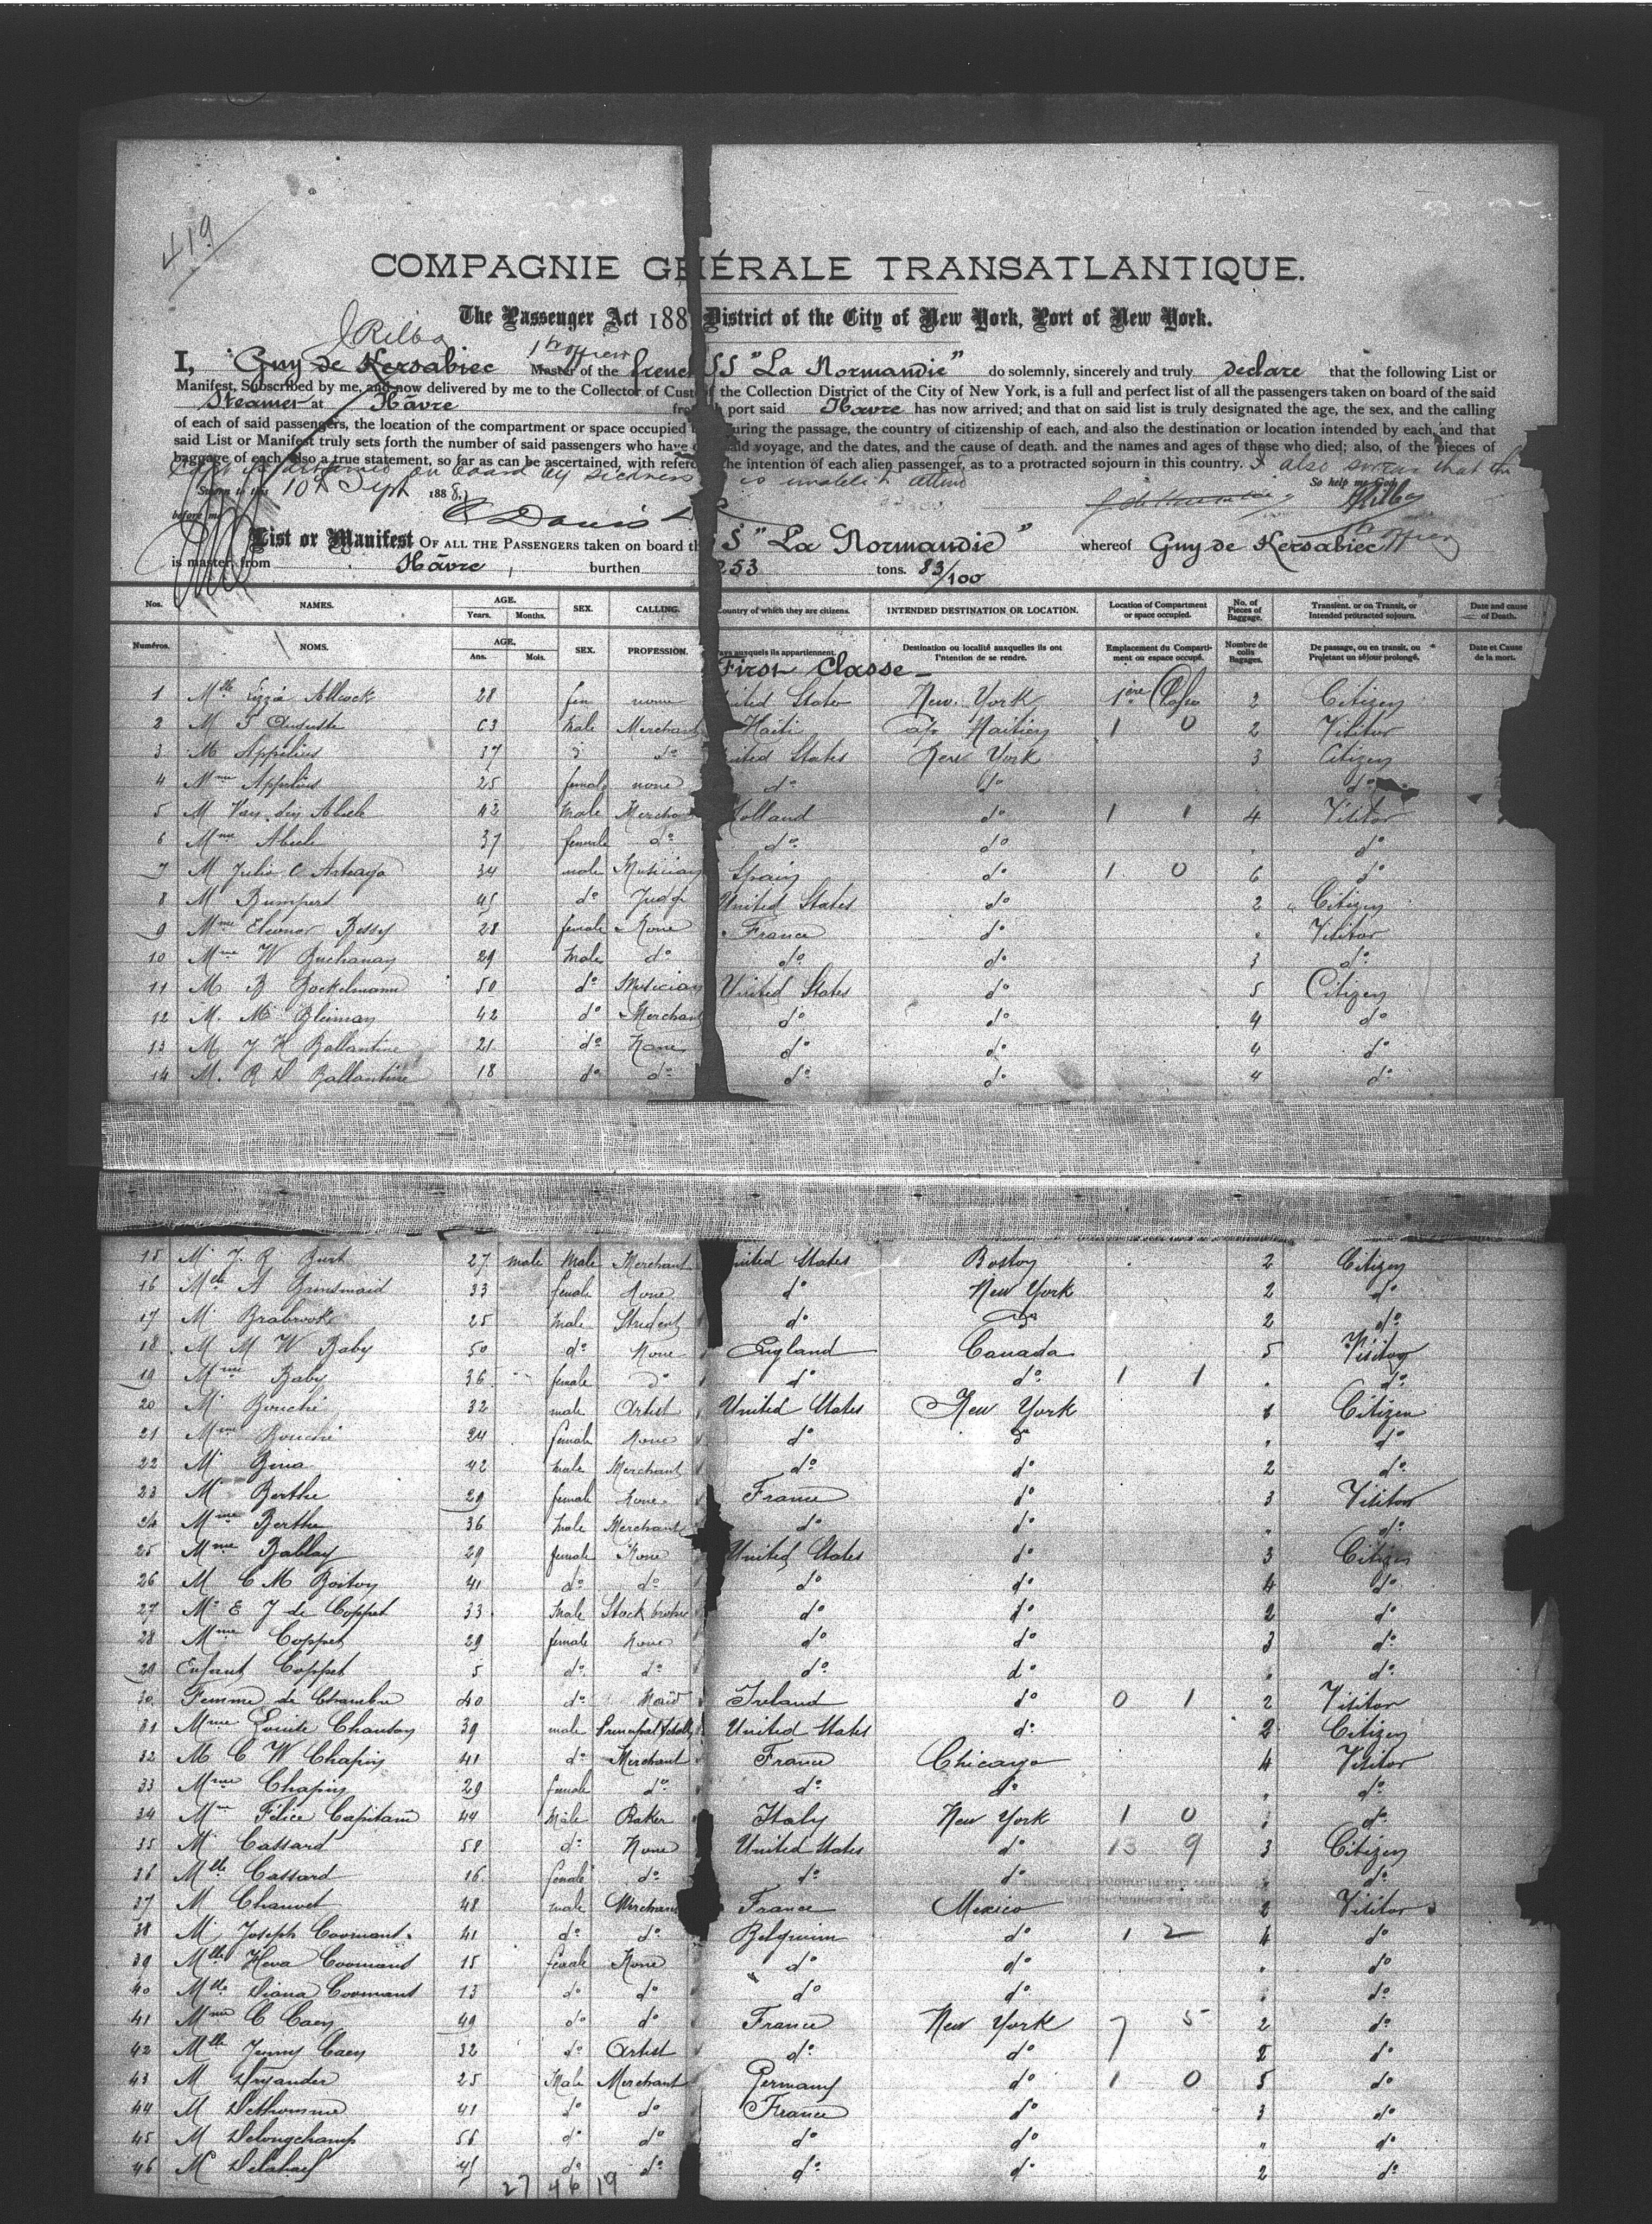 419
COMPAGNIE GÉNÉRALE TRANSATLANTIQUE.
The Passenger Act 188 District of the City of New York, Port of New York.
J Rilba
1st officer
I, Guy de Kersabiec Master of the french SS "La Normandie" do solemnly, sincerely and truly declare that the following List or
Manifest, Subscribed by me, and now delivered by me to the Collector of Cust of the Collection District of the City of New York, is a full and perfect list of all the passengers taken on board of the said
Steamer at Hâvre from port said Havre has now arrived; and that on said list is truly designated the age, the sex, and the calling
of each of said passengers, the location of the compartment or space occupied during the passage, the country of citizenship of each, and also the destination or location intended by each, and that
said List or Manifest truly sets forth the number of said passengers who have said voyage, and the dates, and the cause of death. and the names and ages of those who died; also, of the pieces of
baggage of each also a true statement, so far as can be ascertained, with refere the intention of each alien passenger, as to a protracted sojourn in this country. I also swear that the
on board by sickness is unable to attend
Sworn to this 10th Sept 1888. So help me God
before me
List or Manifest OF ALL THE PASSENGERS taken on board th SS "La Normandie" whereof Guy de Kersabiec
is master, from Hâvre, burthen 253 tons. 83/100
Nos. NAMES. AGE. Years. Months. SEX. CALLING. Country of which they are citizens. INTENDED DESTINATION OR LOCATION. Location of Compartment or space occupied. No. of Pieces of Baggage. Transient. or on Transit, or Intended protracted sojourn. Date and cause of Death.
Numéros. NOMS. AGE. Ans. Mois. SEX. PROFESSION. Pays auxquels ils appartiennent. Destination ou localité auxquelles ils ont l'intention de se rendre. Emplacement du Compartiment ou espace occupé. Nombre de colis Bagages. De passage, ou en transit, ou Projetant un séjour prolongé. Date et Cause de la mort.
First Classe
1 Mlle Lizzie Allcock 28 fem none United States New York 1ère Classe 2 Citizen
2 M T Auguste 63 Male Merchant Haïti Cap Haitien 1 0 2 Visitor
3 M Appelius 37 do do United States New York 3 Citizen
4 Mme Appelius 25 female none do do do
5 M Van den Abeele 42 Male Merchant Holland do 1 1 4 Visitor
6 Mme Abeele 37 female do do do " do
7 M Julio C Arteaga 34 male Musician Spain do 1 0 6 do
8 M Bumpert 45 do Judge United States do 2 Citizen
9 Mme Eleonor Bessy 28 female None France do " Visitor
10 Mme W Buchanan 29 Male do do do 3 do
11 M B Bockelmann 50 do Musician United States do 5 Citizen
12 M. M Bleiman 42 do Merchant do do 4 do
13 M J H Ballantine 21 do None do do 4 do
14 M. R D Ballantine 18 do do do do 4 do
15 M J. R Burt 27 male Male Merchant United States Boston 2 Citizen
16 Mlle A Grinsmaid 33 female None do New York 2 do
17 M Brabrook 25 Male Student do do 2 do
18 M M W Baby 50 do None England Canada 5 Visitor
19 Mme Baby 36 female do do do 1 1 " do
20 M Bouché 32 male Artist United States New York 1 Citizen
21 Mme Bouché 24 female None do do " do
22 M Bena 42 Male Merchant do do 2 do
23 M Berthe 29 female None France do 3 Visitor
24 Mme Berthe 36 Male Merchant do do " do
25 Mme Bablay 29 female None United States do 3 Citizen
26 M C M Boitoy 41 do do do do 4 do
27 M E J de Coppet 33 Male Stock broker do do 2 do
28 Mme Coppet 29 female None do do 3 do
29 Enfant Coppet 5 do do do do " do
30 Femme de Chambre 40 do Maid Ireland do 0 1 2 Visitor
31 Mme Louise Chanson 39 male Principal School United States do 2 Citizen
32 M C W Chapin 41 do Merchant France Chicago 4 Visitor
33 Mme Chapin 29 female do do do " do
34 Mme Félice Capitani 44 Male Baker Italy New York 1 0 1 do
35 M Cassard 58 do None United States do 13 9 3 Citizen
36 Mlle Cassard 16 female do do do " do
37 M Chauvet 48 male Merchant France Mexico 2 Visitor
38 M Joseph Coomans 41 do do Belgium do 1 2 4 do
39 Mlle Heva Coomans 15 female None do do " do
40 Mlle Diana Coomans 13 do do do do " do
41 Mme C Caen 49 do do France New York 7 5 2 do
42 Mlle Jenny Caen 32 do Artist do do 2 do
43 M Dryander 25 Male Merchant Germany do 1 0 5 do
44 M Dethomme 41 do do France do 3 do
45 M Delongchamp 58 do do do do " do
46 M Delahaef 45 do do do do 2 do
27 46 19